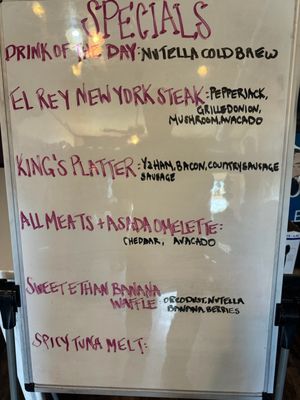 SPECIALS
DRINK OF THE DAY: NUTELLA COLD BREW
EL REY NEW YORK STEAK: PEPPERJACK,
GRILLED ONION,
MUSHROOM, AVACADO
KING'S PLATTER: 1/2 HAM, BACON, COUNTRY SAUSAGE
SAUSAGE
ALL MEATS + ASADA OMELETTE:
CHEDDAR, AVACADO
SWEET ETHAN BANANA
WAFFLE: OREO DUST, NUTELLA
BANANA BERRIES
SPICY TUNA MELT: